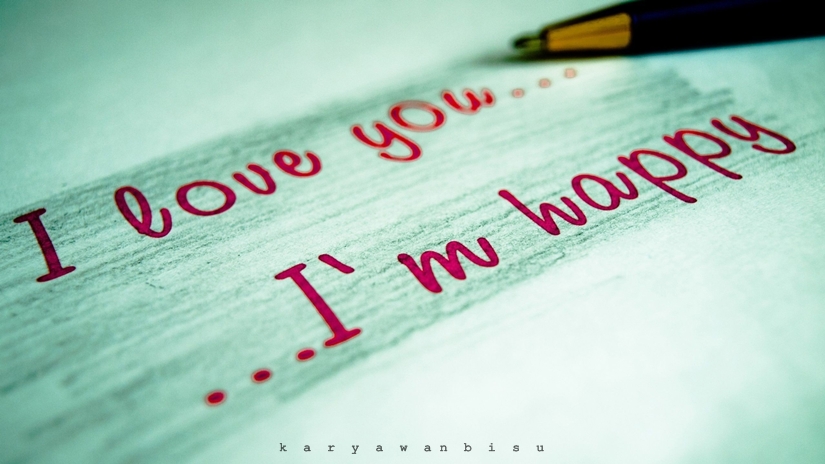 I love you...
...I'm happy
karyawanbisu